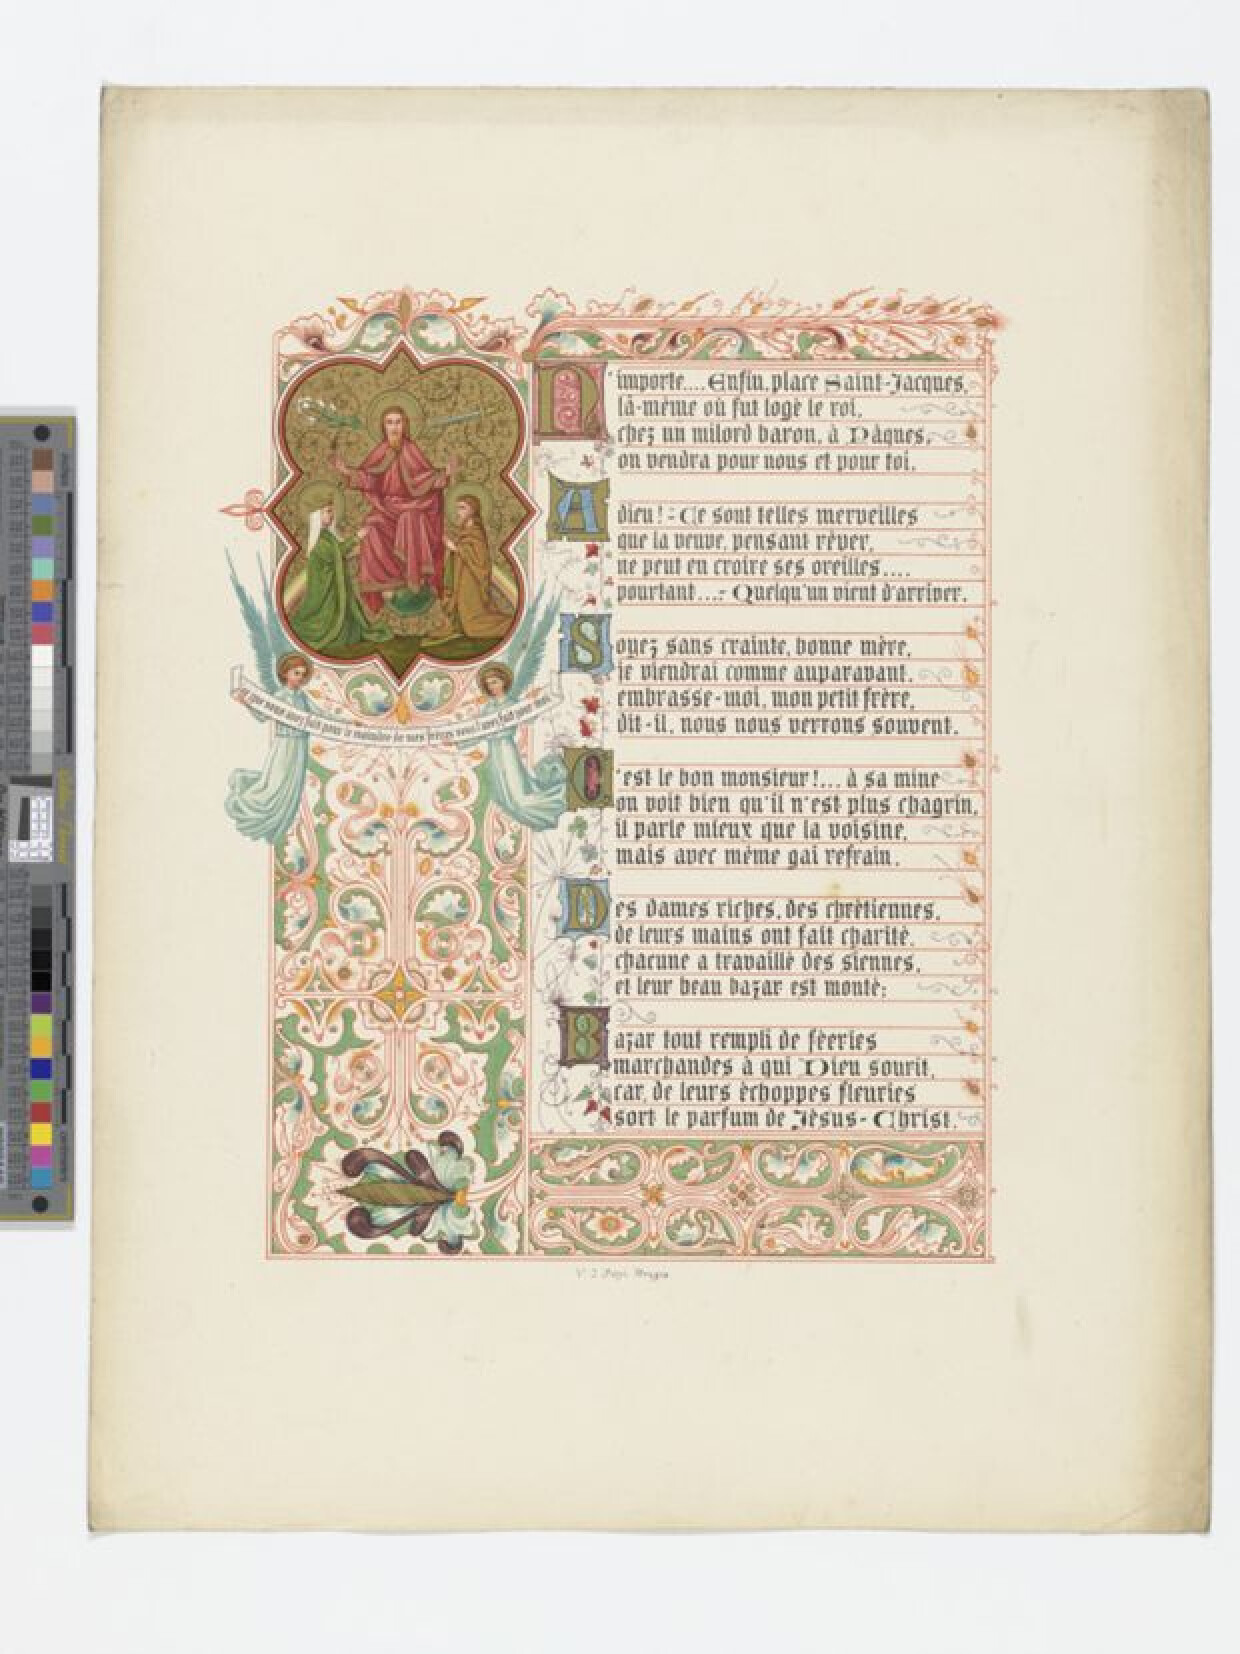 N'importe.... Enfin, place Saint-Jacques,
là-même où fut logé le roi,
chez un milord baron, à Pâques,
on vendra pour nous et pour toi.
Adieu! - Ce sont telles merveilles
que la veuve, pensant rêver,
ne peut en croire ses oreilles....
pourtant...- Quelqu'un vient d'arriver.
Soyez sans crainte, bonne mère,
je viendrai comme auparavant,
embrasse-moi, mon petit frère,
dit-il, nous nous verrons souvent.
C'est le bon monsieur!... à sa mine
on voit bien qu'il n'est plus chagrin,
il parle mieux que la voisine,
mais avec même gai refrain.
Des dames riches, des chrétiennes,
de leurs mains ont fait charité,
chacune a travaillé des siennes,
et leur beau bazar est monté;
Bazar tout rempli de féeries
marchandes à qui Dieu sourit,
car, de leurs échoppes fleuries
sort le parfum de Jésus-Christ.
que vous avez fait pour le moindre de mes frères vous l'avez fait pour moi